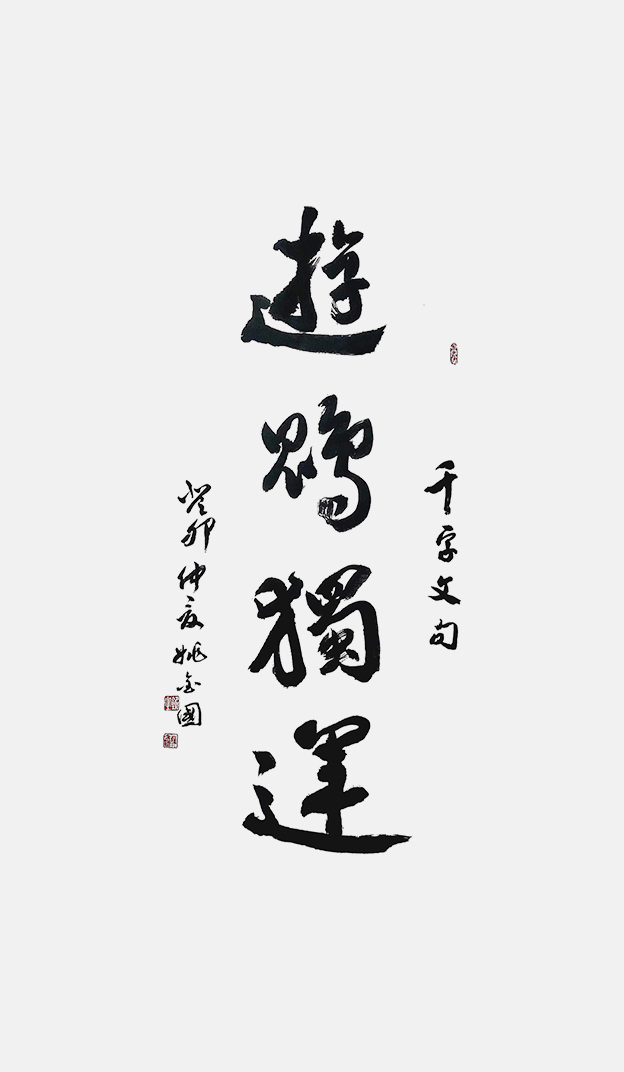 千字文句
遊鵾獨運
癸卯仲夏姚金國